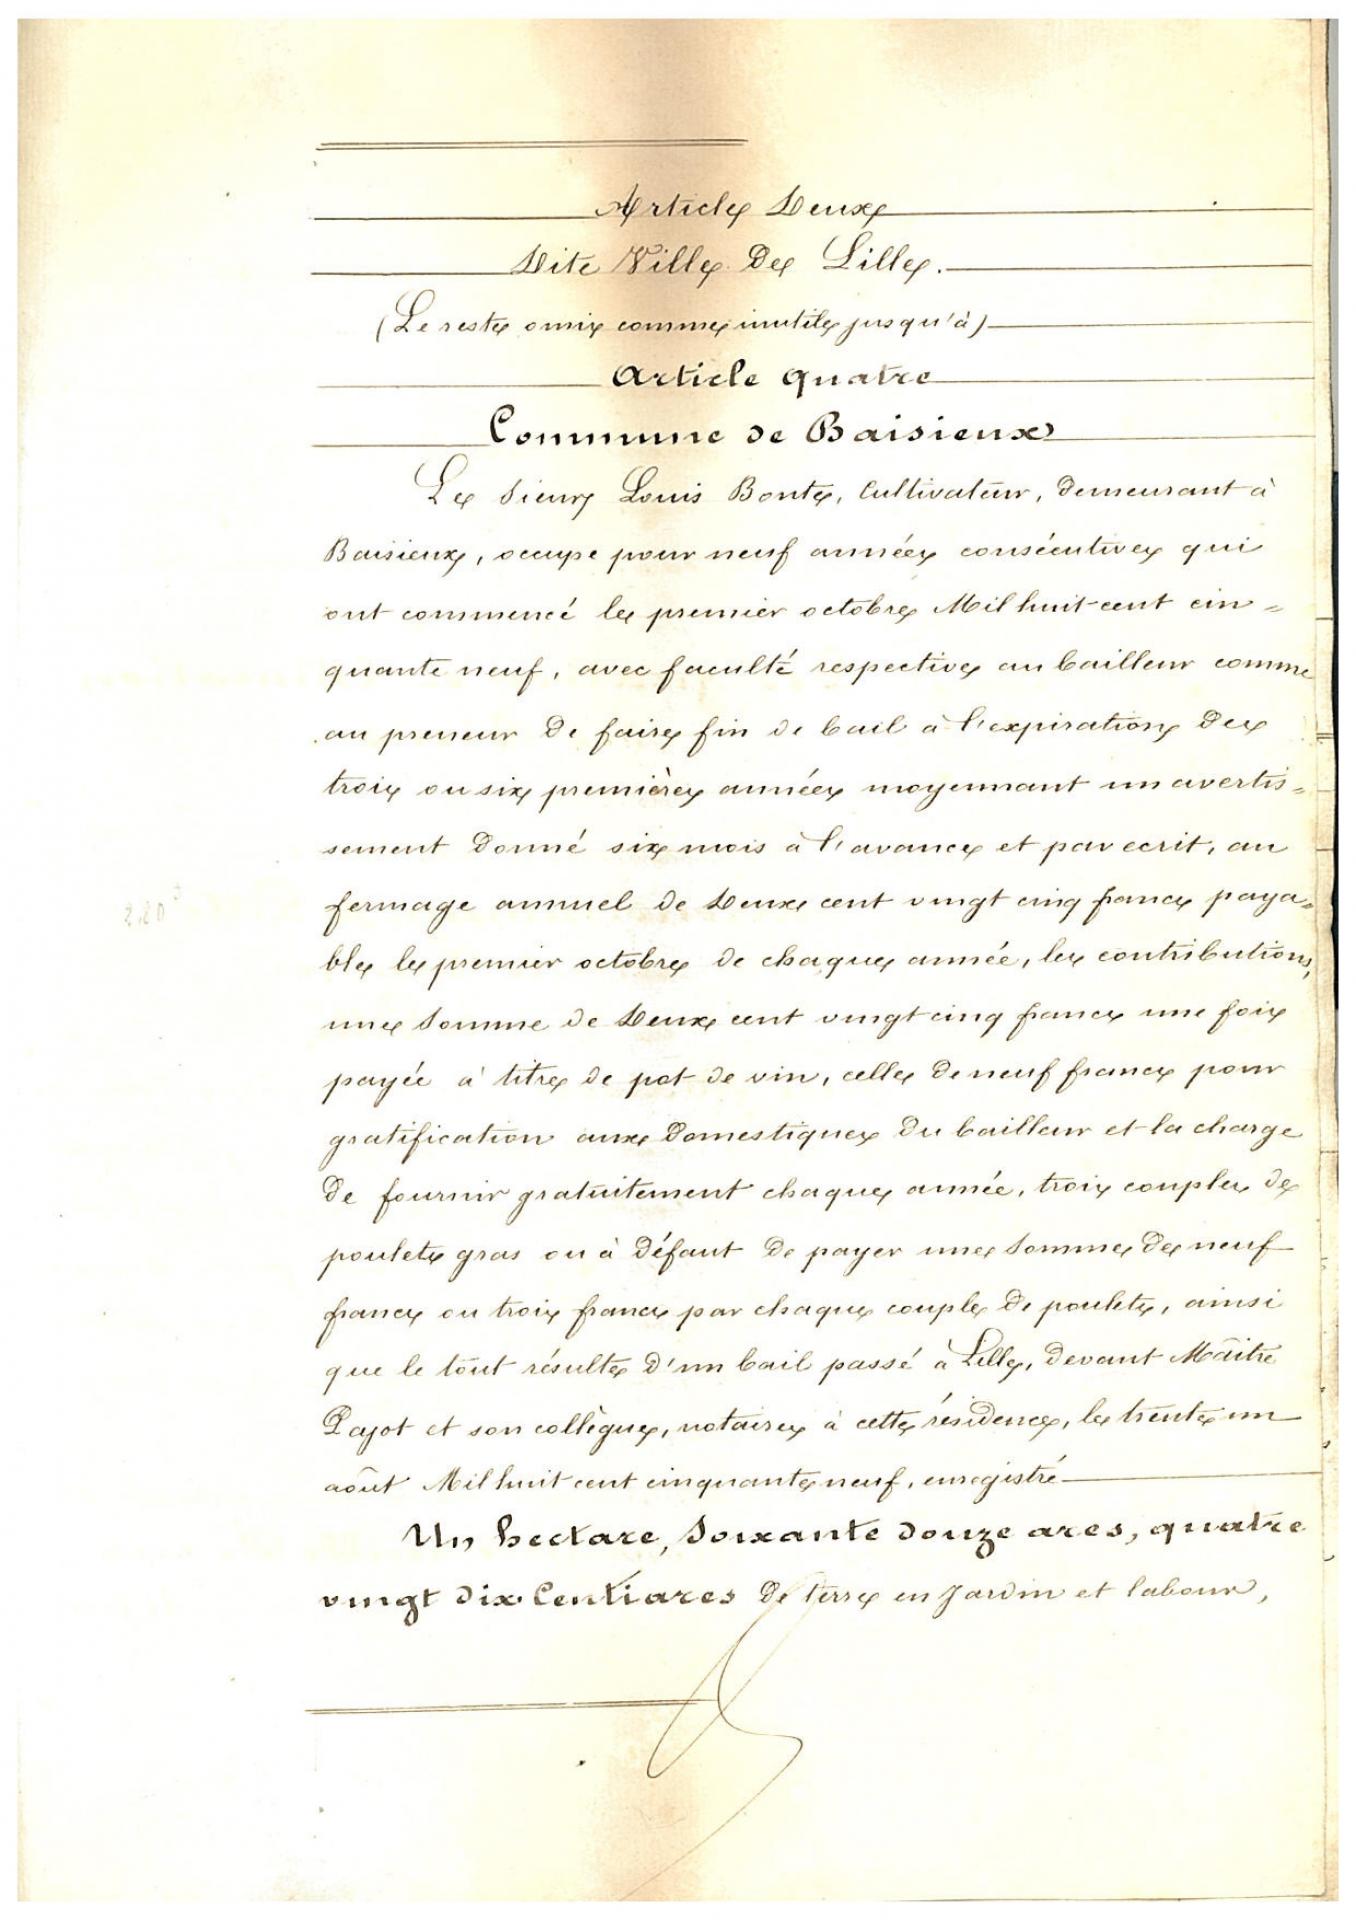 Article Deux
Dite Ville de Lille.
(Le reste omis comme inutile jusqu'à)
Article quatre
Commune de Baisieux
Le sieur Louis Bonte, cultivateur, demeurant à
Baisieux, occupe pour neuf années consécutives qui
ont commencé le premier octobre Mil huit cent cin=
quante neuf, avec faculté respective au bailleur comme
au preneur de faire fin de bail à l'expiration des
trois ou six premières années moyennant un avertis=
sement donné six mois à l'avance et par ecrit, au
fermage annuel de Deux cent vingt cinq francs paya=
ble le premier octobre de chaque année, les contributions,
une somme de Deux cent vingt cinq francs une fois
payée à titre de pot de vin, celle de neuf francs pour
gratification aux domestiques du bailleur et la charge
de fournir gratuitement chaque année, trois couples de
poulets gras ou à défaut de payer une somme de neuf
francs ou trois francs par chaque couple de poulets, ainsi
que le tout résulte d'un bail passé à Lille, devant Maître
Pajot et son collègue, notaires à cette résidence, le trente un
août Mil huit cent cinquante neuf, enregistré
Un hectare, soixante douze ares, quatre
vingt dix Centiares de terre en jardin et labour,